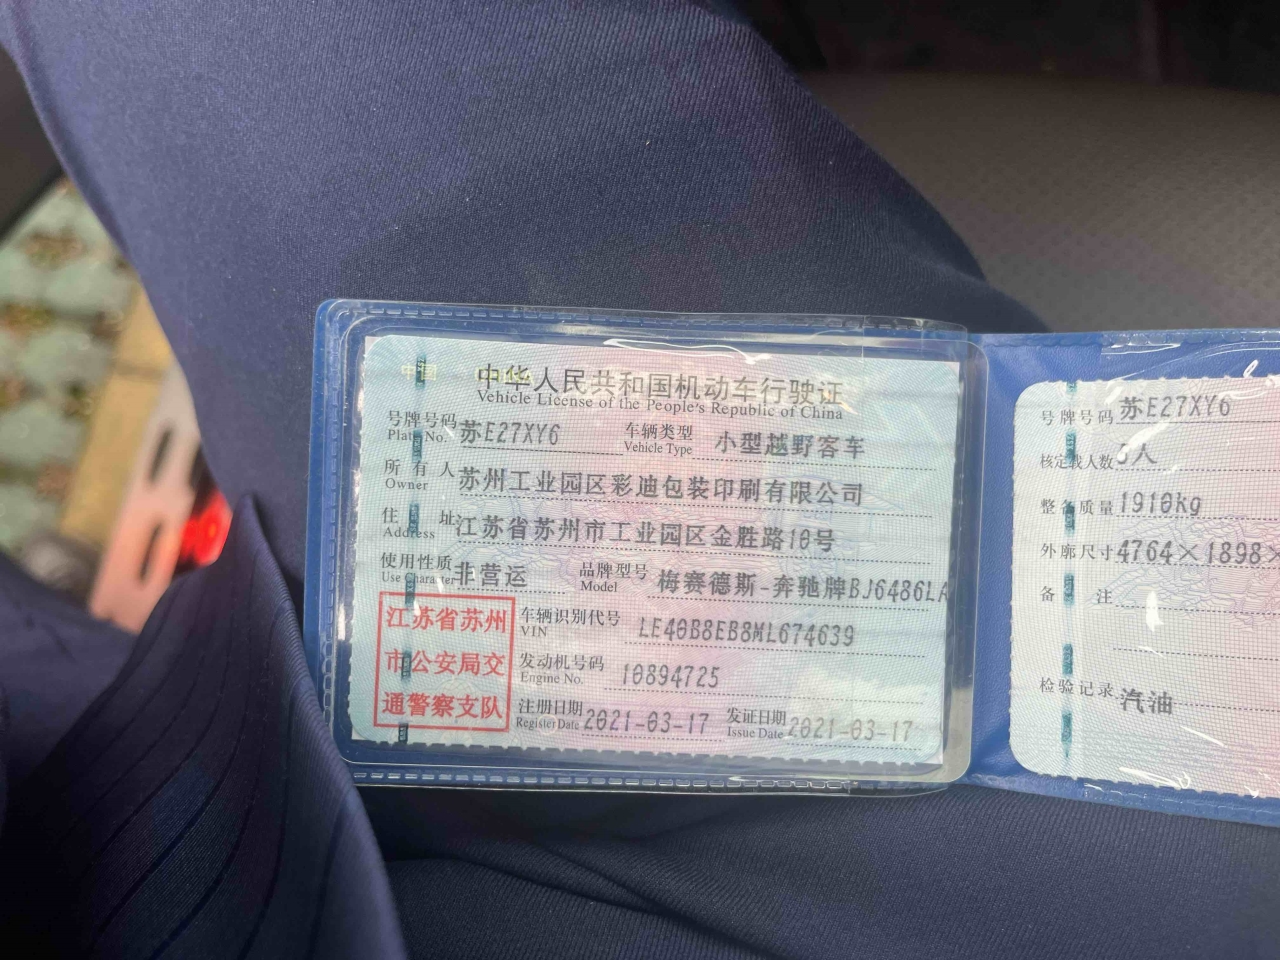 中国
中华人民共和国机动车行驶证
Vehicle License of the People's Republic of China
号牌号码 苏E27XY6 车辆类型 小型越野客车
Plate No. Vehicle Type
所有人 苏州工业园区彩迪包装印刷有限公司
Owner
住址 江苏省苏州市工业园区金胜路10号
Address
使用性质 非营运 品牌型号 梅赛德斯-奔驰牌BJ6486LA
Use Character Model
江苏省苏州
市公安局交
通警察支队
车辆识别代号 LE40B8EB8ML674639
VIN
发动机号码 10894725
Engine No.
注册日期 2021-03-17 发证日期 2021-03-17
Register Date Issue Date
号牌号码 苏E27XY6
核定载人数 5人
整备质量 1910kg
外廓尺寸 4764×1898×
备注
检验记录 汽油